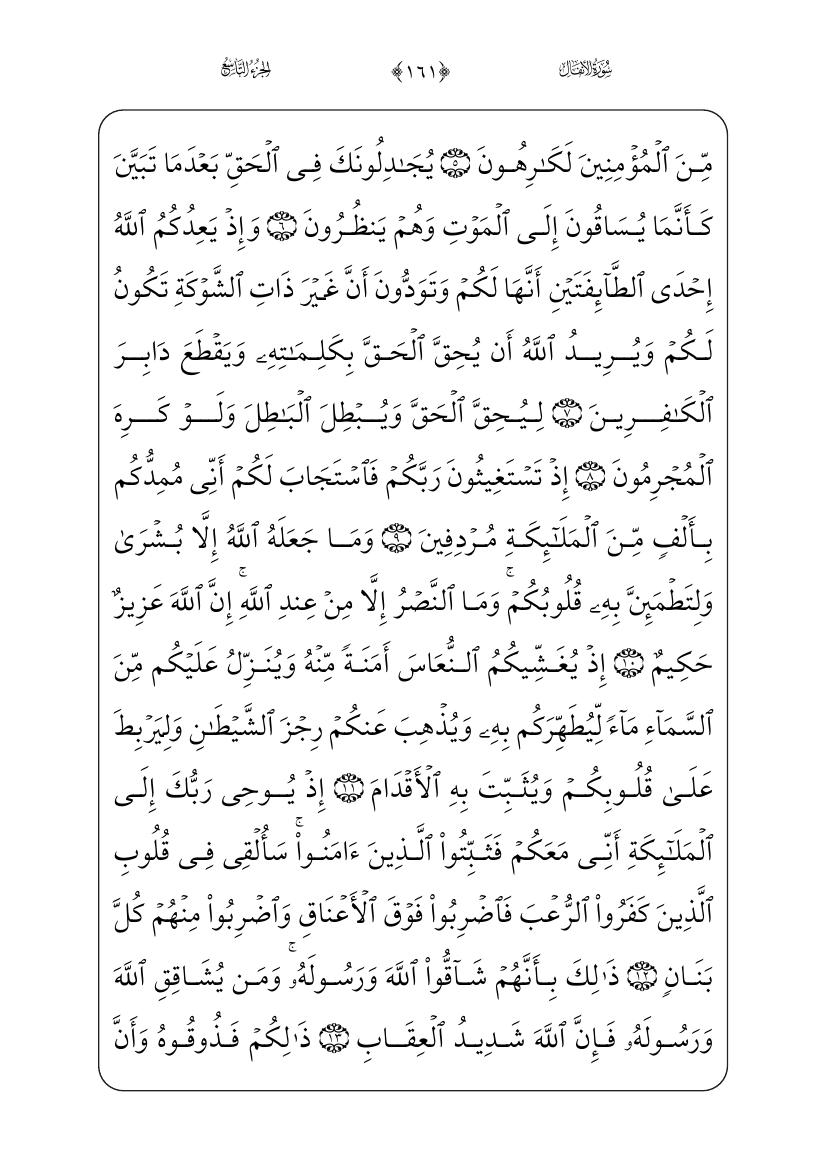 سُورَةُ الأَنفَالِ ﴿١٦١﴾ الجُزْءُ التَّاسِعُ
مِّنَ ٱلۡمُؤۡمِنِينَ لَكَٰرِهُونَ ٥ يُجَٰدِلُونَكَ فِي ٱلۡحَقِّ بَعۡدَمَا تَبَيَّنَ
كَأَنَّمَا يُسَاقُونَ إِلَى ٱلۡمَوۡتِ وَهُمۡ يَنظُرُونَ ٦ وَإِذۡ يَعِدُكُمُ ٱللَّهُ
إِحۡدَى ٱلطَّآئِفَتَيۡنِ أَنَّهَا لَكُمۡ وَتَوَدُّونَ أَنَّ غَيۡرَ ذَاتِ ٱلشَّوۡكَةِ تَكُونُ
لَكُمۡ وَيُرِيدُ ٱللَّهُ أَن يُحِقَّ ٱلۡحَقَّ بِكَلِمَٰتِهِۦ وَيَقۡطَعَ دَابِرَ
ٱلۡكَٰفِرِينَ ٧ لِيُحِقَّ ٱلۡحَقَّ وَيُبۡطِلَ ٱلۡبَٰطِلَ وَلَوۡ كَرِهَ
ٱلۡمُجۡرِمُونَ ٨ إِذۡ تَسۡتَغِيثُونَ رَبَّكُمۡ فَٱسۡتَجَابَ لَكُمۡ أَنِّي مُمِدُّكُم
بِأَلۡفٖ مِّنَ ٱلۡمَلَٰٓئِكَةِ مُرۡدِفِينَ ٩ وَمَا جَعَلَهُ ٱللَّهُ إِلَّا بُشۡرَىٰ
وَلِتَطۡمَئِنَّ بِهِۦ قُلُوبُكُمۡۚ وَمَا ٱلنَّصۡرُ إِلَّا مِنۡ عِندِ ٱللَّهِۚ إِنَّ ٱللَّهَ عَزِيزٌ
حَكِيمٌ ١٠ إِذۡ يُغَشِّيكُمُ ٱلنُّعَاسَ أَمَنَةٗ مِّنۡهُ وَيُنَزِّلُ عَلَيۡكُم مِّنَ
ٱلسَّمَآءِ مَآءٗ لِّيُطَهِّرَكُم بِهِۦ وَيُذۡهِبَ عَنكُمۡ رِجۡزَ ٱلشَّيۡطَٰنِ وَلِيَرۡبِطَ
عَلَىٰ قُلُوبِكُمۡ وَيُثَبِّتَ بِهِ ٱلۡأَقۡدَامَ ١١ إِذۡ يُوحِي رَبُّكَ إِلَى
ٱلۡمَلَٰٓئِكَةِ أَنِّي مَعَكُمۡ فَثَبِّتُواْ ٱلَّذِينَ ءَامَنُواْۚ سَأُلۡقِي فِي قُلُوبِ
ٱلَّذِينَ كَفَرُواْ ٱلرُّعۡبَ فَٱضۡرِبُواْ فَوۡقَ ٱلۡأَعۡنَاقِ وَٱضۡرِبُواْ مِنۡهُمۡ كُلَّ
بَنَانٖ ١٢ ذَٰلِكَ بِأَنَّهُمۡ شَآقُّواْ ٱللَّهَ وَرَسُولَهُۥۚ وَمَن يُشَاقِقِ ٱللَّهَ
وَرَسُولَهُۥ فَإِنَّ ٱللَّهَ شَدِيدُ ٱلۡعِقَابِ ١٣ ذَٰلِكُمۡ فَذُوقُوهُ وَأَنَّ